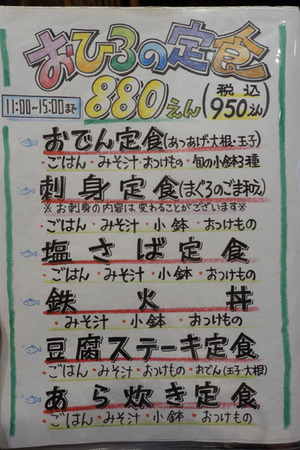 おひるの定食
11:00~15:00まで 880えん (税込950えん)
おでん定食(あつあげ・大根・玉子)
・ごはん・みそ汁・おつけもの・旬の小鉢3種
刺身定食(まぐろのごま和え)
※お刺身の内容は変わることがございます※
・ごはん・みそ汁・小鉢・おつけもの
塩さば定食
・ごはん・みそ汁・小鉢・おつけもの
鉄火丼
・みそ汁・小鉢・おつけもの
豆腐ステーキ定食
・ごはん・みそ汁・おつけもの・おでん(玉子・大根)
あら炊き定食
・ごはん・みそ汁・小鉢・おつけもの